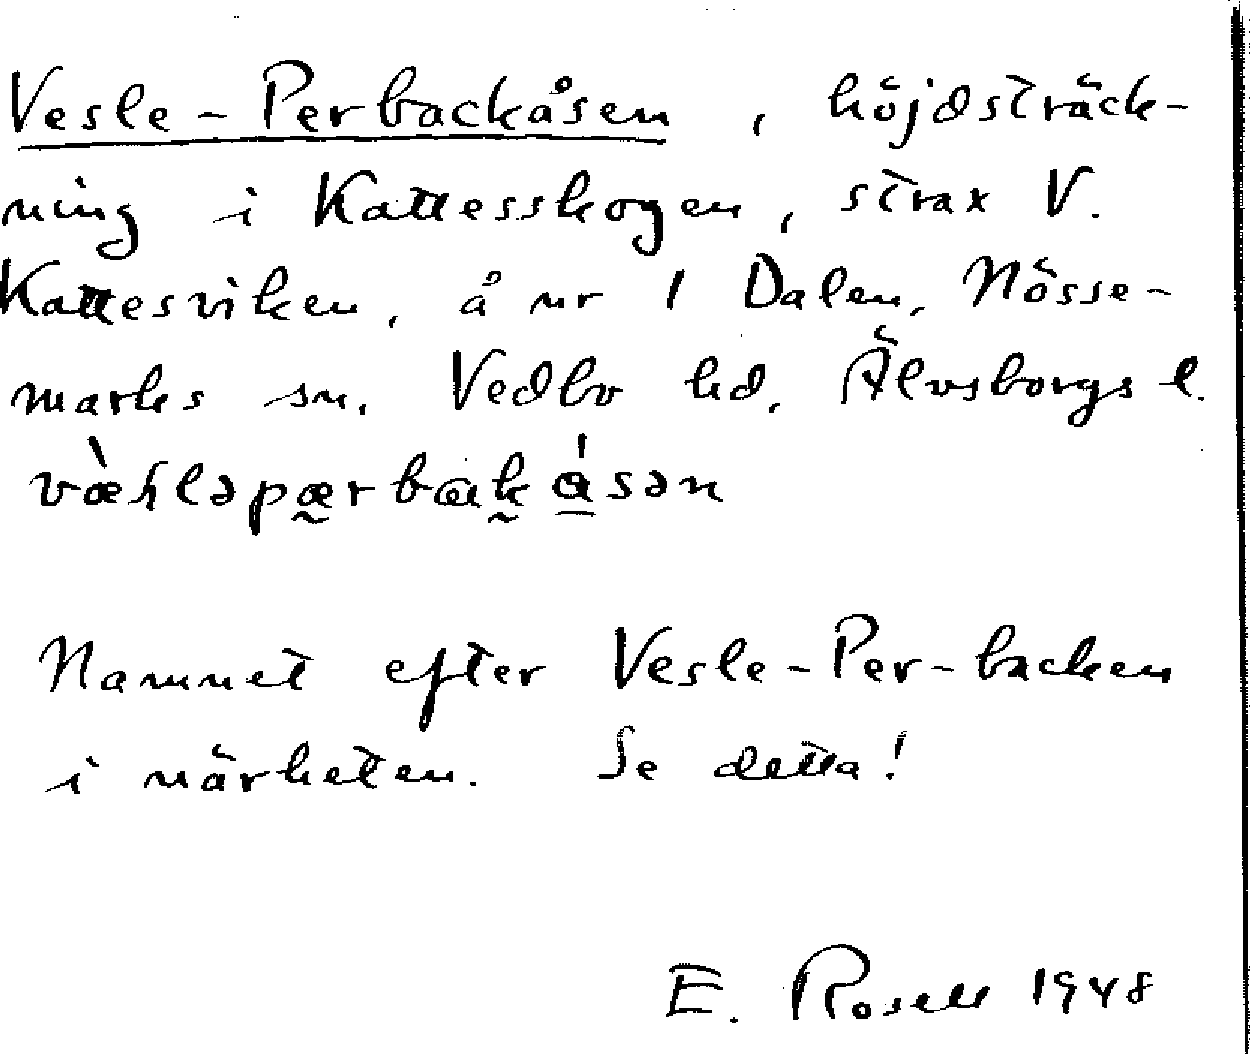 Vesle-Perbackåsen, höjdsträck-
ning i Kattesskogen, strax V.
Kattesviken, å nr 1 Dalen, Nösse-
marks sn, Vedbo hd, Älvsborgs l.
Namnet efter Vesle-Per-backen
i närheten. Se detta!
E. Rosell 1948